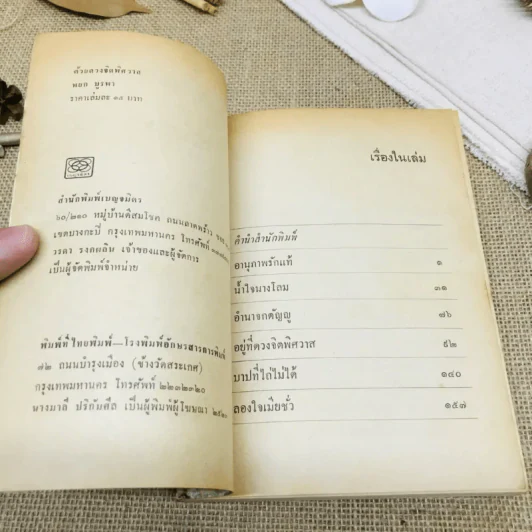 ด้วยดวงจิตพิศวาส
พลอย บูรพา
ราคาเล่มละ ๑๕ บาท
สำนักพิมพ์เบญจมิตร
๖๐/๒๑๐ หมู่บ้านดิสมโชค ถนนลาดพร้าว
เขตบางกะปิ กรุงเทพมหานคร โทรศัพท์
วรดา รงคผลิน เจ้าของและผู้จัดการ
เป็นผู้จัดพิมพ์จำหน่าย
พิมพ์ที่ ไทยพิมพ์—โรงพิมพ์อักษรสารการพิมพ์
๗๒ ถนนบำรุงเมือง (ข้างวัดสระเกศ)
กรุงเทพมหานคร โทรศัพท์ ๒๒๓๒๓๒๐
นางมาลี ปริกัมศีล เป็นผู้พิมพ์ผู้โฆษณา
เรื่องในเล่ม
คำนำสำนักพิมพ์
อานุภาพรักแท้ ๑
น้ำใจนางโลม ๓๑
อำนาจกตัญญู ๗๖
อยู่ที่ดวงจิตพิศวาส ๙๒
บาปที่ไถ่ไม่ได้ ๑๔๐
ลองใจเมียชั่ว ๑๕๗